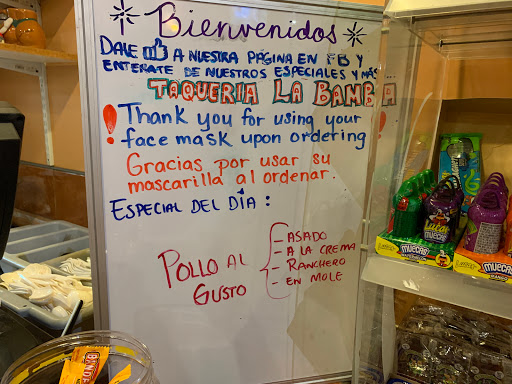 Bienvenidos
DALE 👍 A NUESTRA PÁGINA EN FB Y
ENTERATE DE NUESTROS ESPECIALES Y MÁS
TAQUERIA LA BAMBA
! Thank you for using your !
face mask upon ordering
Gracias por usar su
mascarilla al ordenar.
ESPECIAL DEL DÍA :
POLLO AL GUSTO
- ASADO
- A LA CREMA
- RANCHERO
- EN MOLE
MUECAS
MUECAS